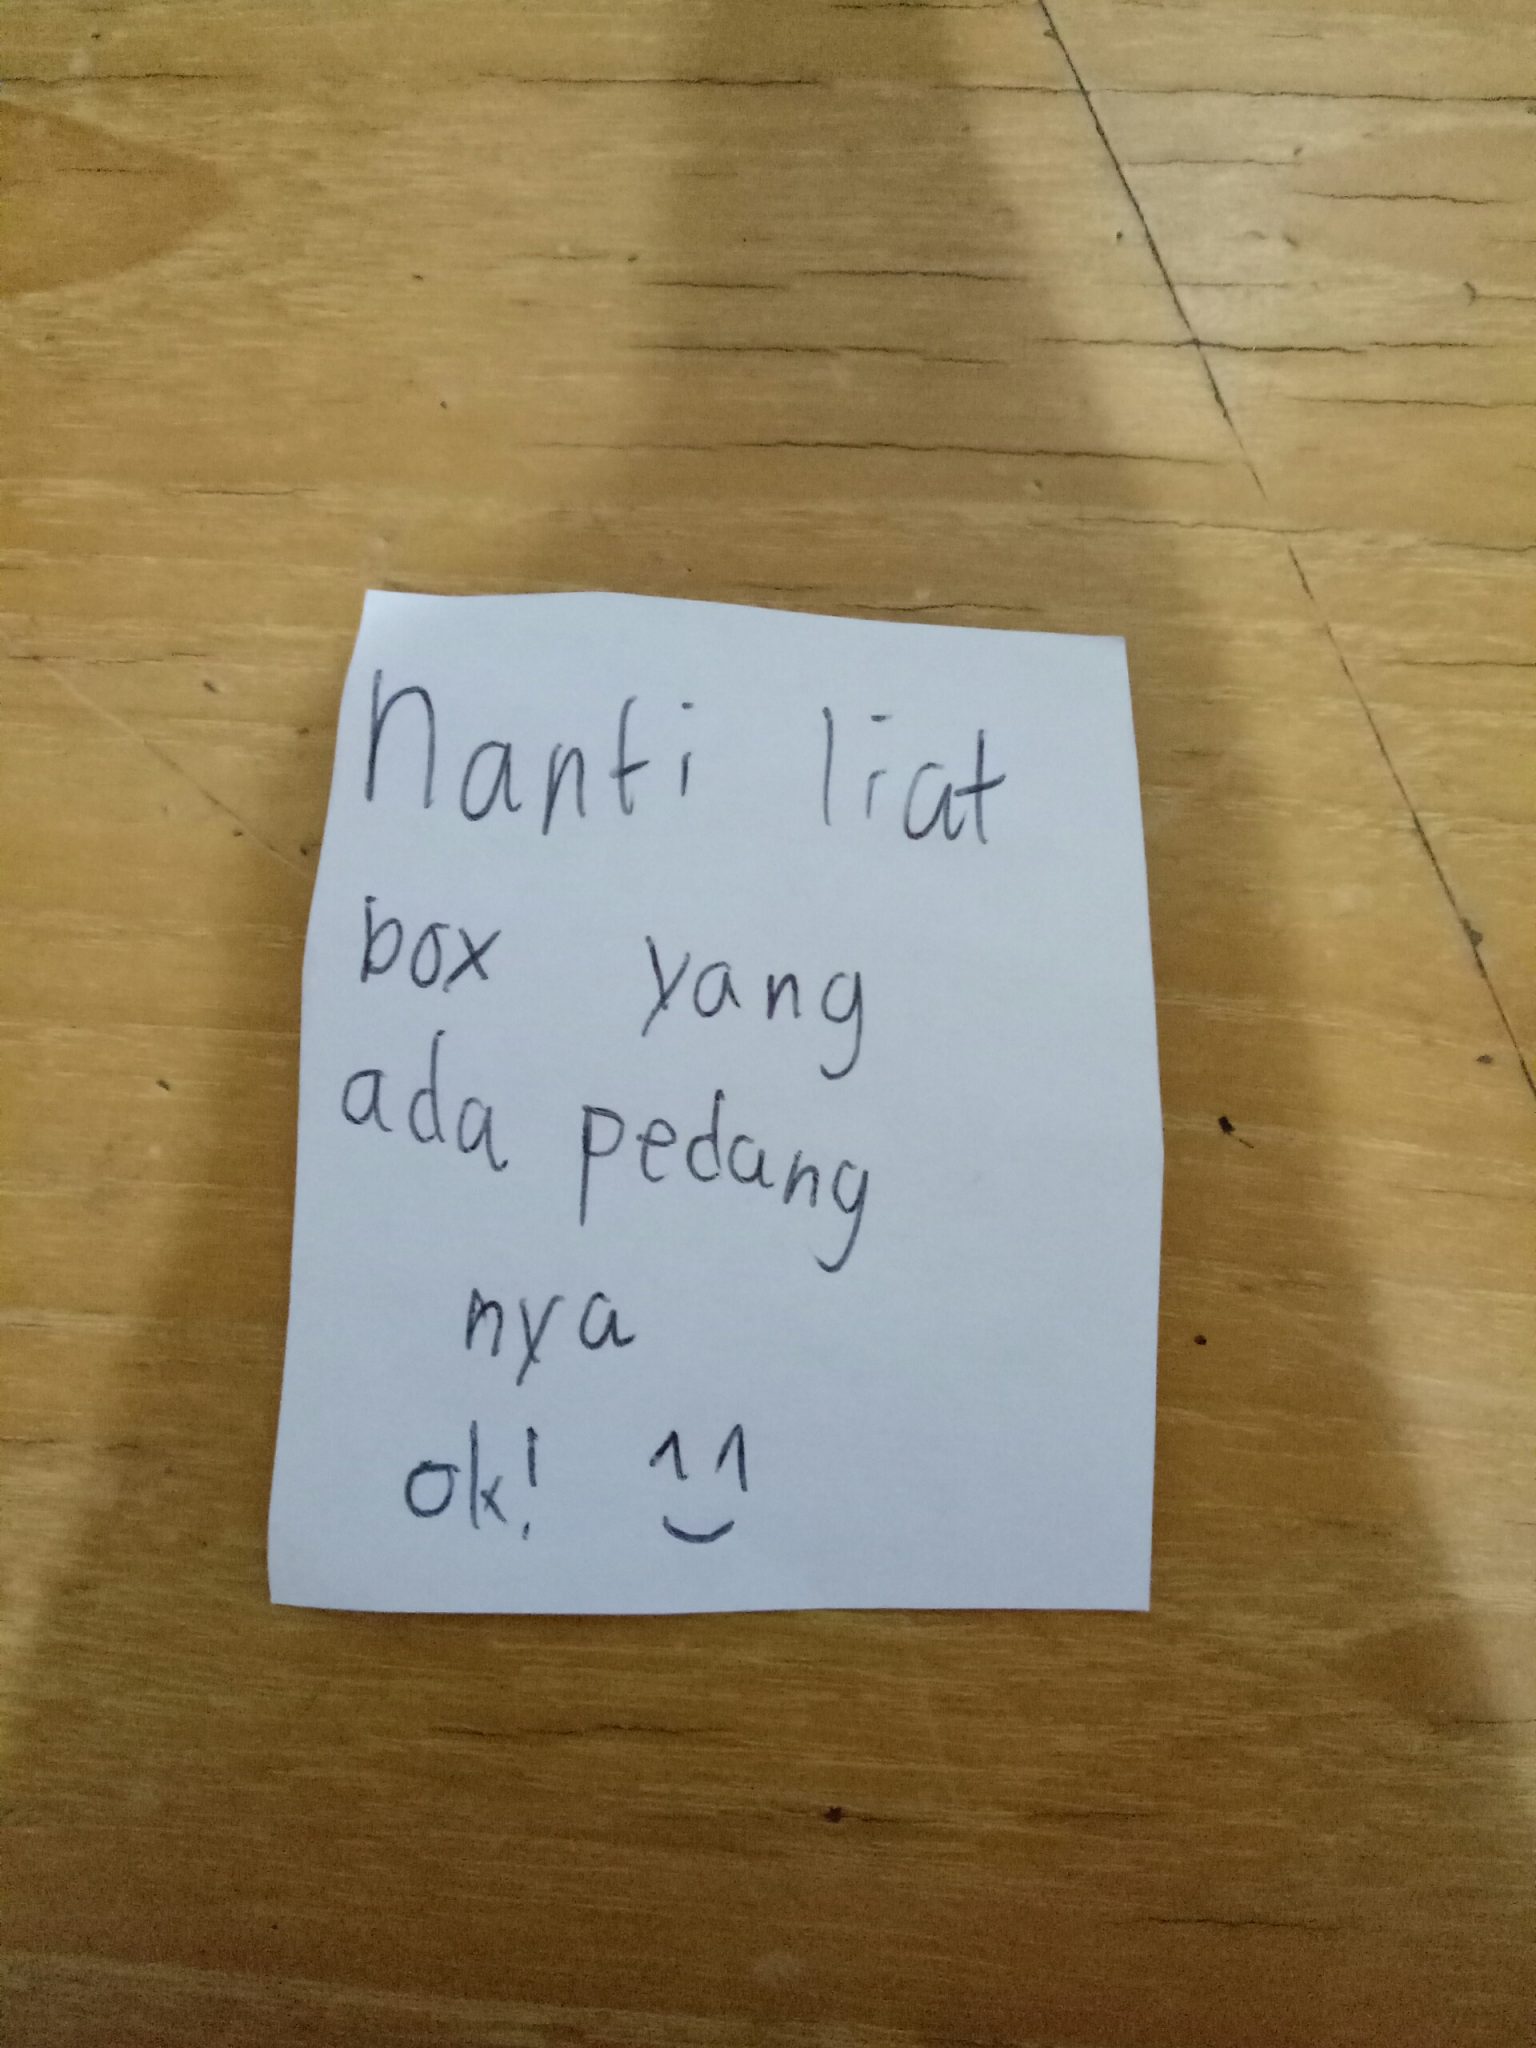 Nanti liat
box yang
ada pedang
nya
ok!